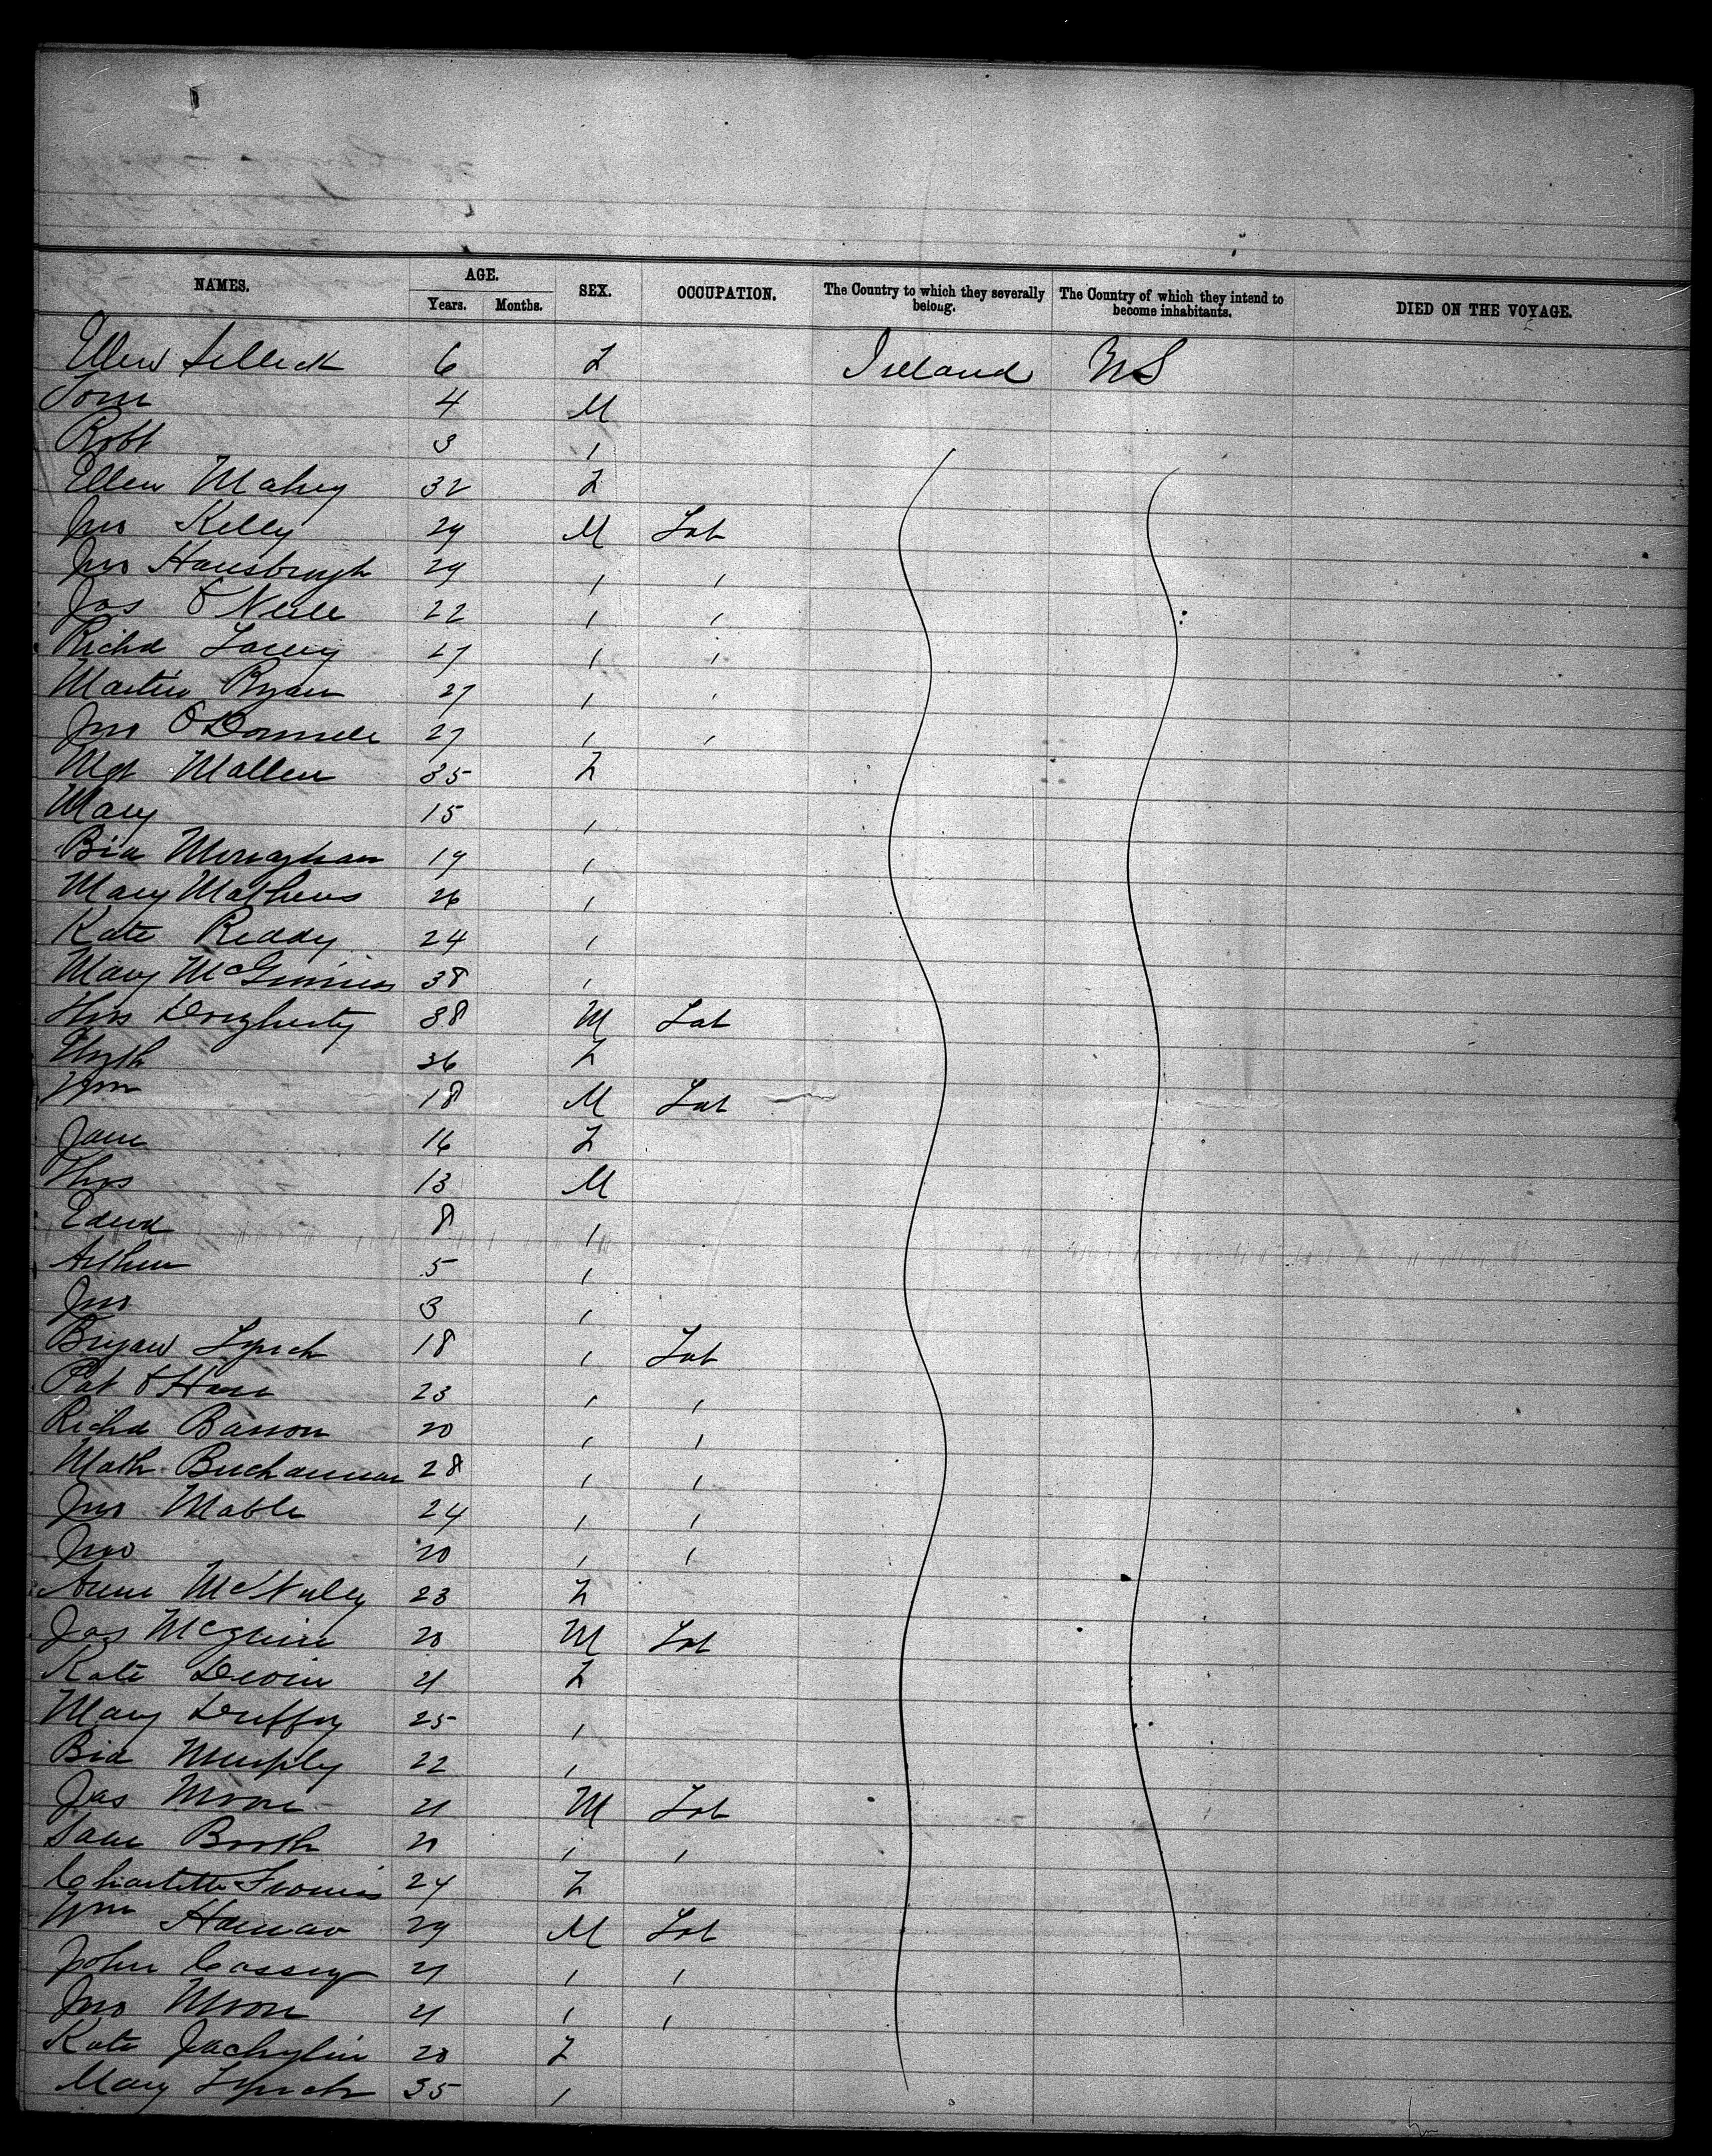 NAMES. AGE. SEX. OCCUPATION. The Country to which they severally belong. The Country of which they intend to become inhabitants. DIED ON THE VOYAGE.
Years. Months.
Ellen 6 F Ireland US
Tom 4 M
Robt 3 "
Ellen Mahey 32 F
Jno Kelly 29 M Lab
Jno Hansbrugh 29 " "
Jas O'Neill 22 " "
Richd Lacey 27 " "
Martin Ryan 27 " "
Jno O'Donnell 27 " "
Mgt Mallen 35 F
Mary 15 "
Bid Monaghan 19 "
Mary Mathews 26 "
Kate Reddy 24 "
Mary McGinniss 38 "
Thos Dougherty 38 M Lab
Elizth 36 F
Wm 18 M Lab
Jane 16 F
Thos 13 M
Edwd 8 "
Arthur 5 "
Jno 3 "
Bryan Lynch 18 " Lab
Pat O'Hara 23 " "
Richd Basson 20 " "
Math Buchannan 28 " "
Jno Mable 24 " "
Jno 20 " "
Anne McNully 23 F
Jas McGuire 20 M Lab
Kate Devin 21 F
Mary Duffy 25 "
Bid Murphy 22 "
Jas Moore 21 M Lab
Saml Booth 21 " "
Charlotte 24 F
Wm Hannan 29 M Lab
John Cassey 21 " "
Jno Moore 21 " "
Kate 20 F
Mary Lynch 35 "